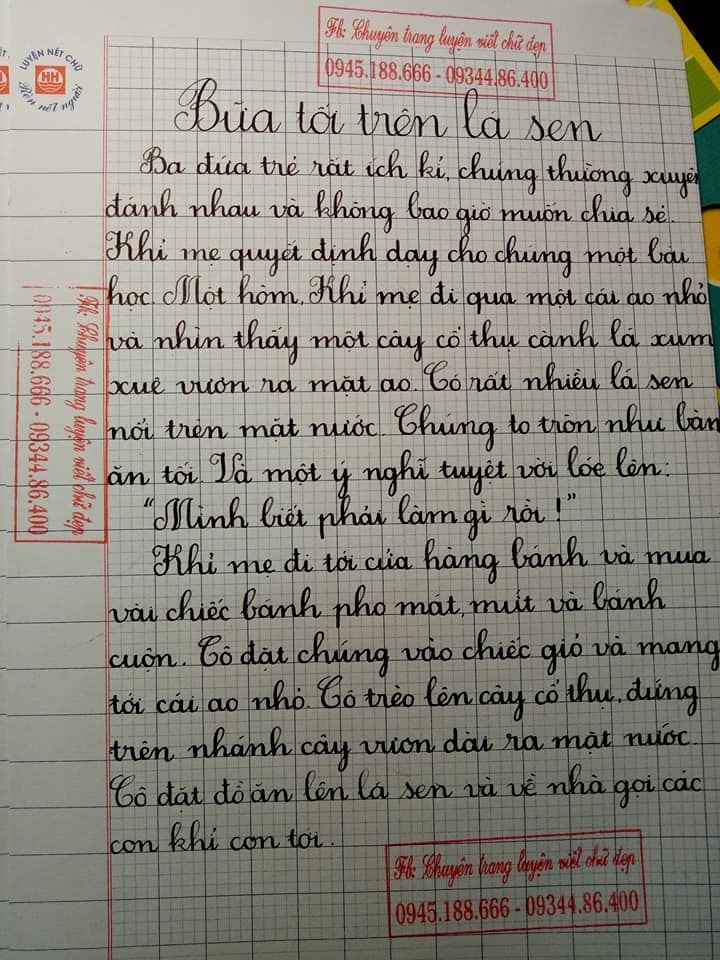 LUYỆN NÉT CHỮ
HH
Rèn nết người
Fb: Chuyên trang luyện viết chữ đẹp
0945.188.666 - 09344.86.400
Bữa tối trên lá sen
Ba đứa trẻ rất ích kỉ, chúng thường xuyên
đánh nhau và không bao giờ muốn chia sẻ.
Khỉ mẹ quyết định dạy cho chúng một bài
học. Một hôm, Khỉ mẹ đi qua một cái ao nhỏ
và nhìn thấy một cây cổ thụ cành lá xum
xuê vươn ra mặt ao. Có rất nhiều lá sen
nổi trên mặt nước. Chúng to tròn như bàn
ăn tối. Và một ý nghĩ tuyệt vời lóe lên:
"Mình biết phải làm gì rồi!"
Khỉ mẹ đi tới cửa hàng bánh và mua
vài chiếc bánh pho mát, mứt và bánh
cuộn. Cô đặt chúng vào chiếc giỏ và mang
tới cái ao nhỏ. Cô trèo lên cây cổ thụ, đứng
trên nhánh cây vươn dài ra mặt nước.
Cô đặt đồ ăn lên lá sen và về nhà gọi các
con khỉ con tới.
Fb: Chuyên trang luyện viết chữ đẹp
0945.188.666 - 09344.86.400
Fb: Chuyên trang luyện viết chữ đẹp
0945.188.666 - 09344.86.400